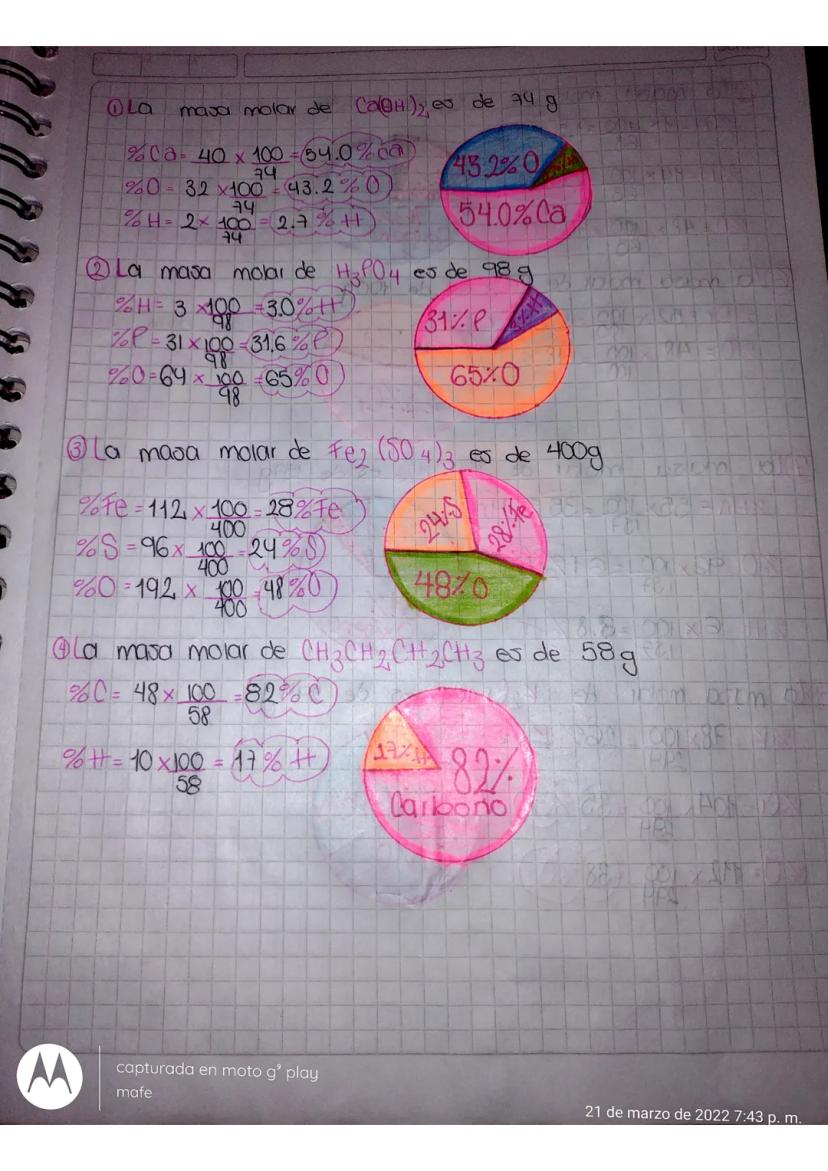 ① La masa molar de Ca(OH)2, es de 74 g
%Ca= 40 x 100/74 = 54.0% Ca
%O = 32 x 100/74 = 43.2 % O
%H= 2 x 100/74 = 2.7 % H
43.2% O
54.0% Ca
② La masa molar de H3PO4 es de 98 g
%H= 3 x 100/98 = 3.0% H
%P = 31 x 100/98 = 31.6 % P
%O = 64 x 100/98 = 65% O
31% P
3% H
65% O
③ La masa molar de Fe2 (SO4)3 es de 400g
%Fe = 112 x 100/400 = 28% Fe
%S = 96 x 100/400 = 24% S
%O = 192 x 100/400 = 48% O
24% S
28% Fe
48% O
④ La masa molar de CH3CH2CH2CH3 es de 58 g
%C= 48 x 100/58 = 82% C
%H= 10 x 100/58 = 17% H
17% H
82%
Carbono
capturada en moto g⁹ play
mafe
21 de marzo de 2022 7:43 p. m.